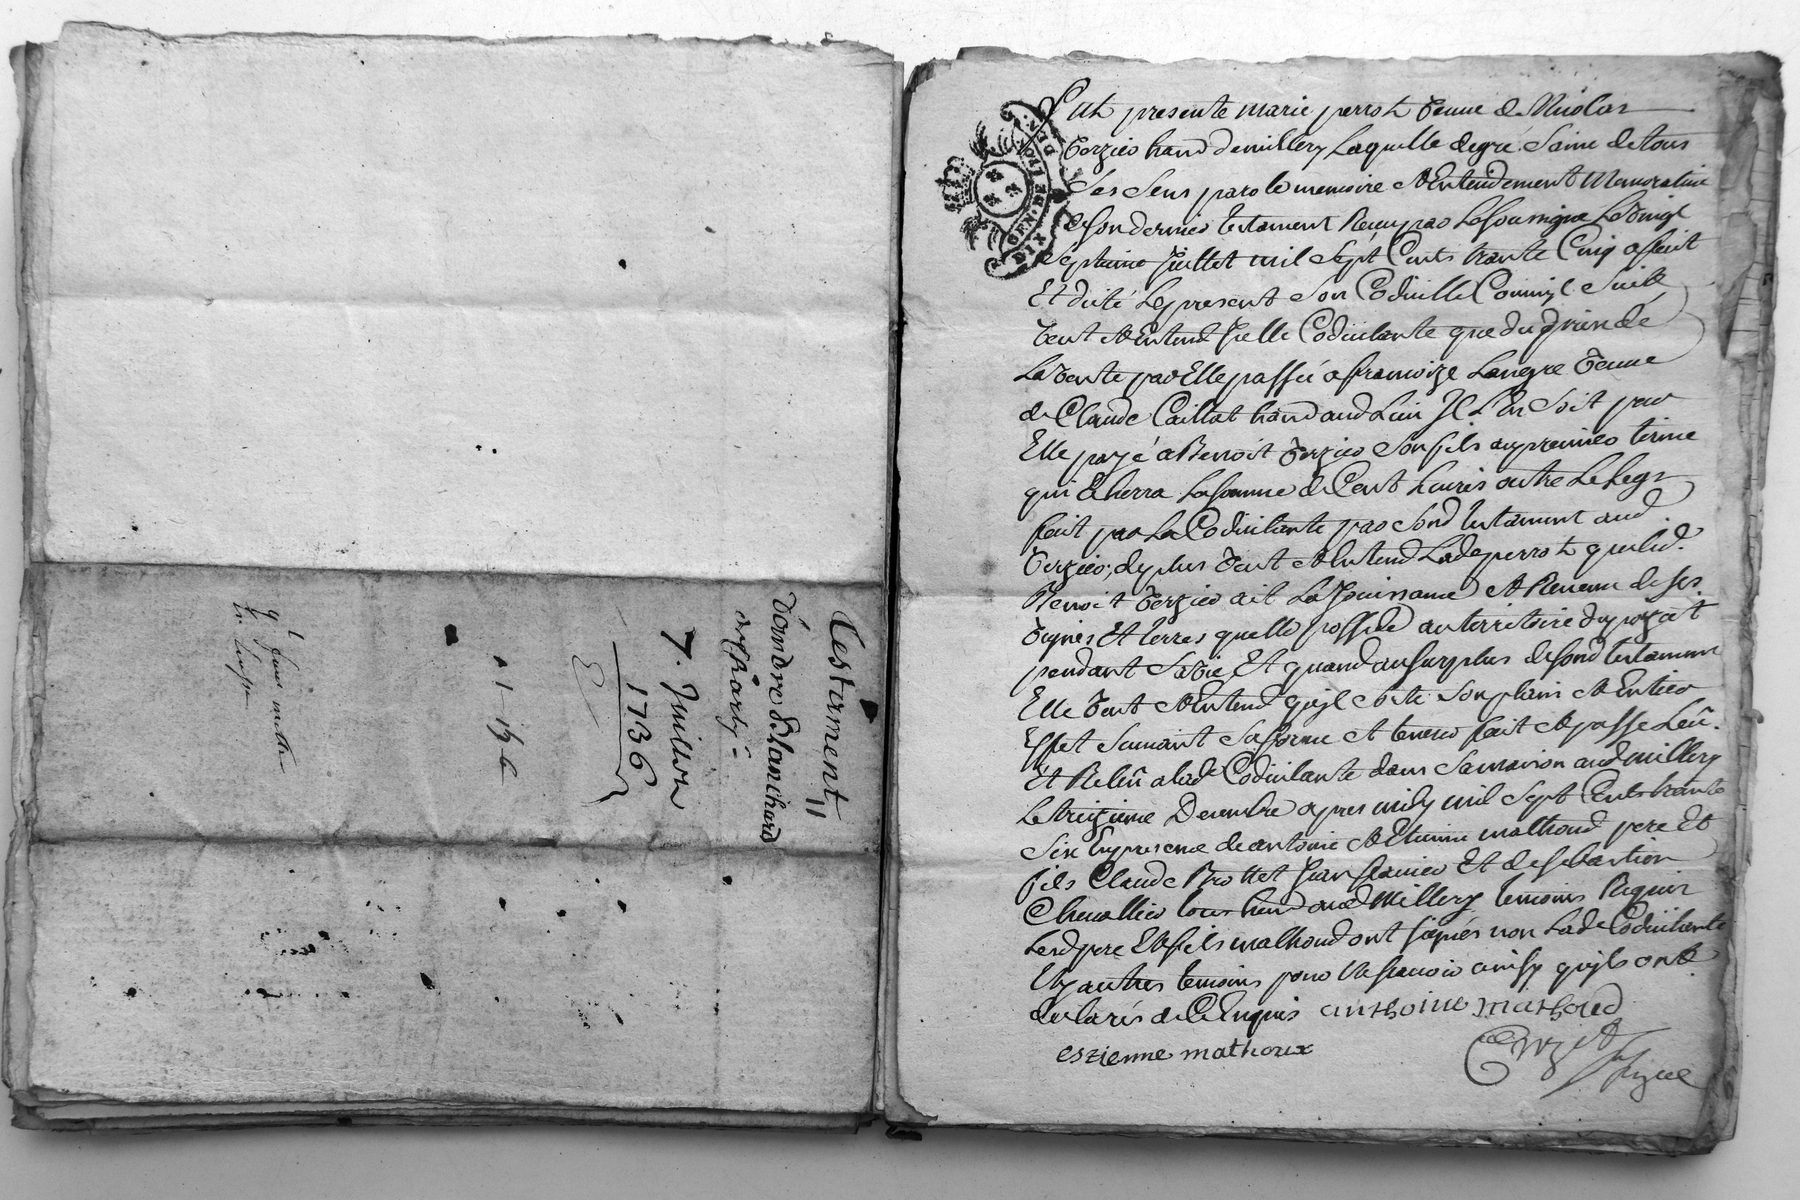 Testament
d'andre Blanchard
7. Juillet
1736
GEN. DE LYON
DIX DEN.
Fut presente marie perrot femme de Nicolas
Verzieo hand de millery Laquelle degré saine de tous
ses sens parole memoire et Entendement Memorative
de son dernier testament Receu par Le soussigné Le vingt
septieme Juillet mil sept Cents trante Cinq a fait
Et dicté Le present son Codicille Comme suit
veut et Entend Icelle Codicilante que du prix de
La vente par Elle passée a francoize Langre femme
de Claude Caillat hand aud Lieu Il En soit par
Elle payé a Benoit Verzieo son fils au premier terme
qui Echerra La somme de Cent Livres outre Le Legs
fait par La Codicilante par sond testament aud
Verzieo, de plus veut et Entend Lade perrot que led.
Benoit Verzieo ait La Jouissance et Revenu de ses
vignes Et terres quelle possede au territoire du
pendant sa vie, Et quand au surplus de sond testament
Elle veut et Entend quil sorte son plain et Entier
Effet suivant sa forme et teneur fait et passe Leu
Et Releu a lade Codicilante dans sa maison aud millery
Le treizieme Decembre apres midy mil sept Cents trante
six En presence de antoine et Etienne mathoud pere Et
fils Claude Brottet Jean Et de sebastien
Chevallier tous hand aud Millery temoins Requis
Lesd pere Et fils mathoud ont signés non Lade Codicilante
Ny autres temoins pour ne scavoir ainsy quils ont
declarés de ce Enquis anthoine mathoud
estienne mathoux